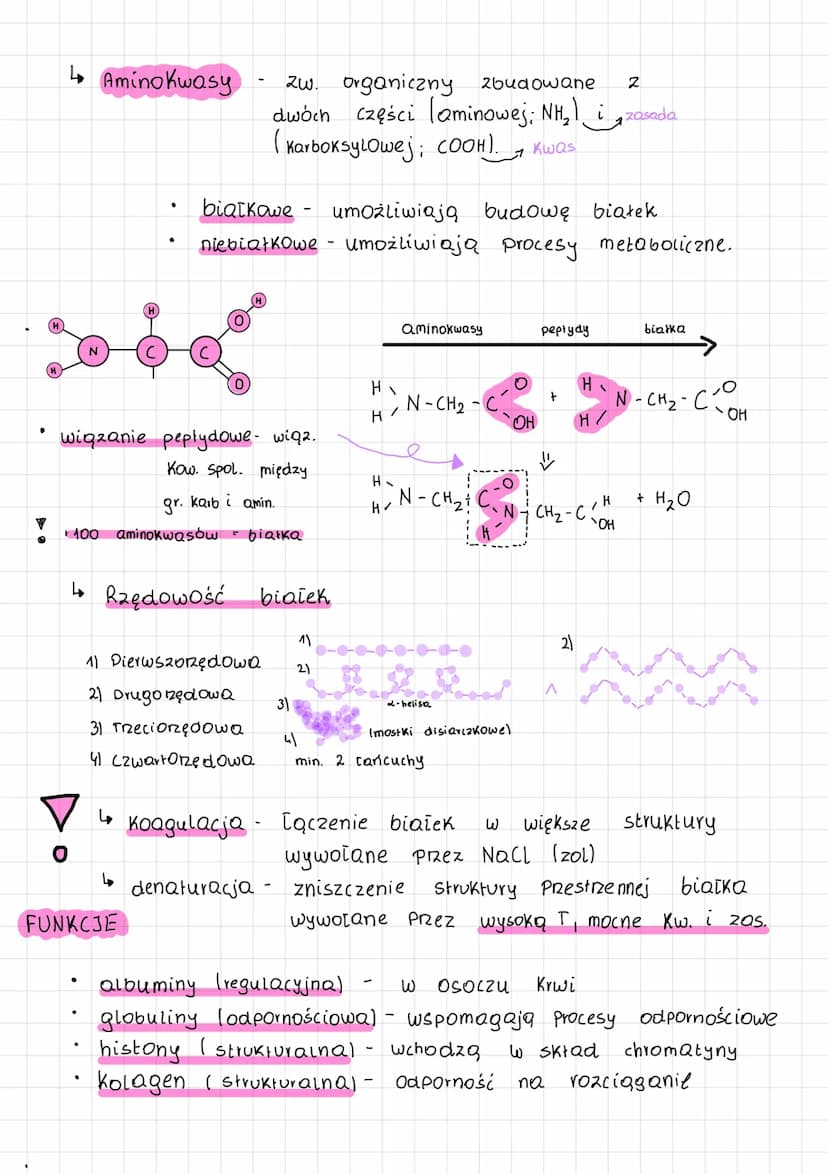 ↳ Aminokwasy - zw. organiczny zbudowane z
dwóch części (aminowej; NH₂) i zasada
(karboksylowej; COOH). kwas
• białkowe - umożliwiają budowę białek
• niebiałkowe - umożliwiają procesy metaboliczne.
H H H O H
N C C
H O
aminokwasy peptydy białka
H H N - CH₂ - C O OH + H H N - CH₂ - C O OH
• wiązanie peptydowe - wiąz.
kow. spol. między
gr. karb i amin.
H H N - CH₂ - C O N H - CH₂ - C H OH + H₂O
! >100 aminokwasów = białka
↳ Rzędowość białek
1) Pierwszorzędowa
2) Drugorzędowa
3) Trzeciorzędowa
4) Czwartorzędowa
1)
2)
α-helisa
3)
(mostki disiarczkowe)
4)
min. 2 łańcuchy
2)
^
! ↳ Koagulacja - łączenie białek w większe struktury
wywołane przez NaCl (zol)
↳ denaturacja - zniszczenie struktury przestrzennej białka
wywołane przez wysoką T, mocne kw. i zas.
FUNKCJE
• albuminy (regulacyjna) - w osoczu krwi
• globuliny (odpornościowa) - wspomagają procesy odpornościowe
• histony (strukturalna) - wchodzą w skład chromatyny
• kolagen (strukturalna) - odporność na rozciąganie